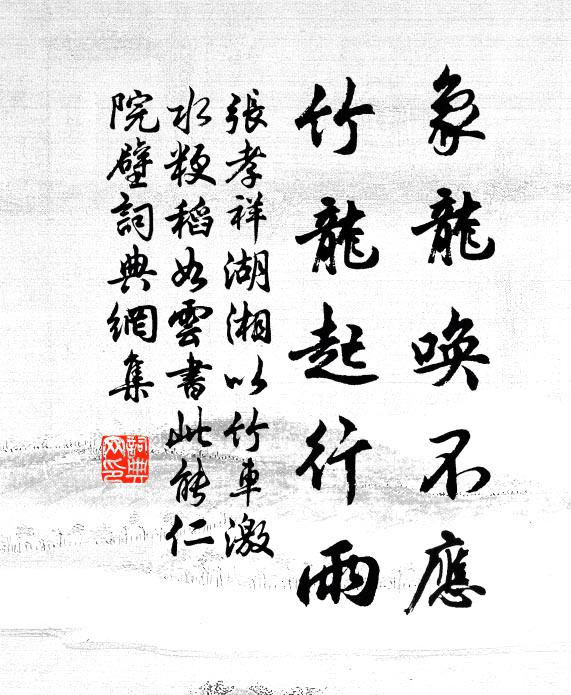 象龍喚不應
竹龍起行雨
張孝祥湖湘以竹車激
水粳稻如雲書此能仁
院壁詞典網集
詞典
网印